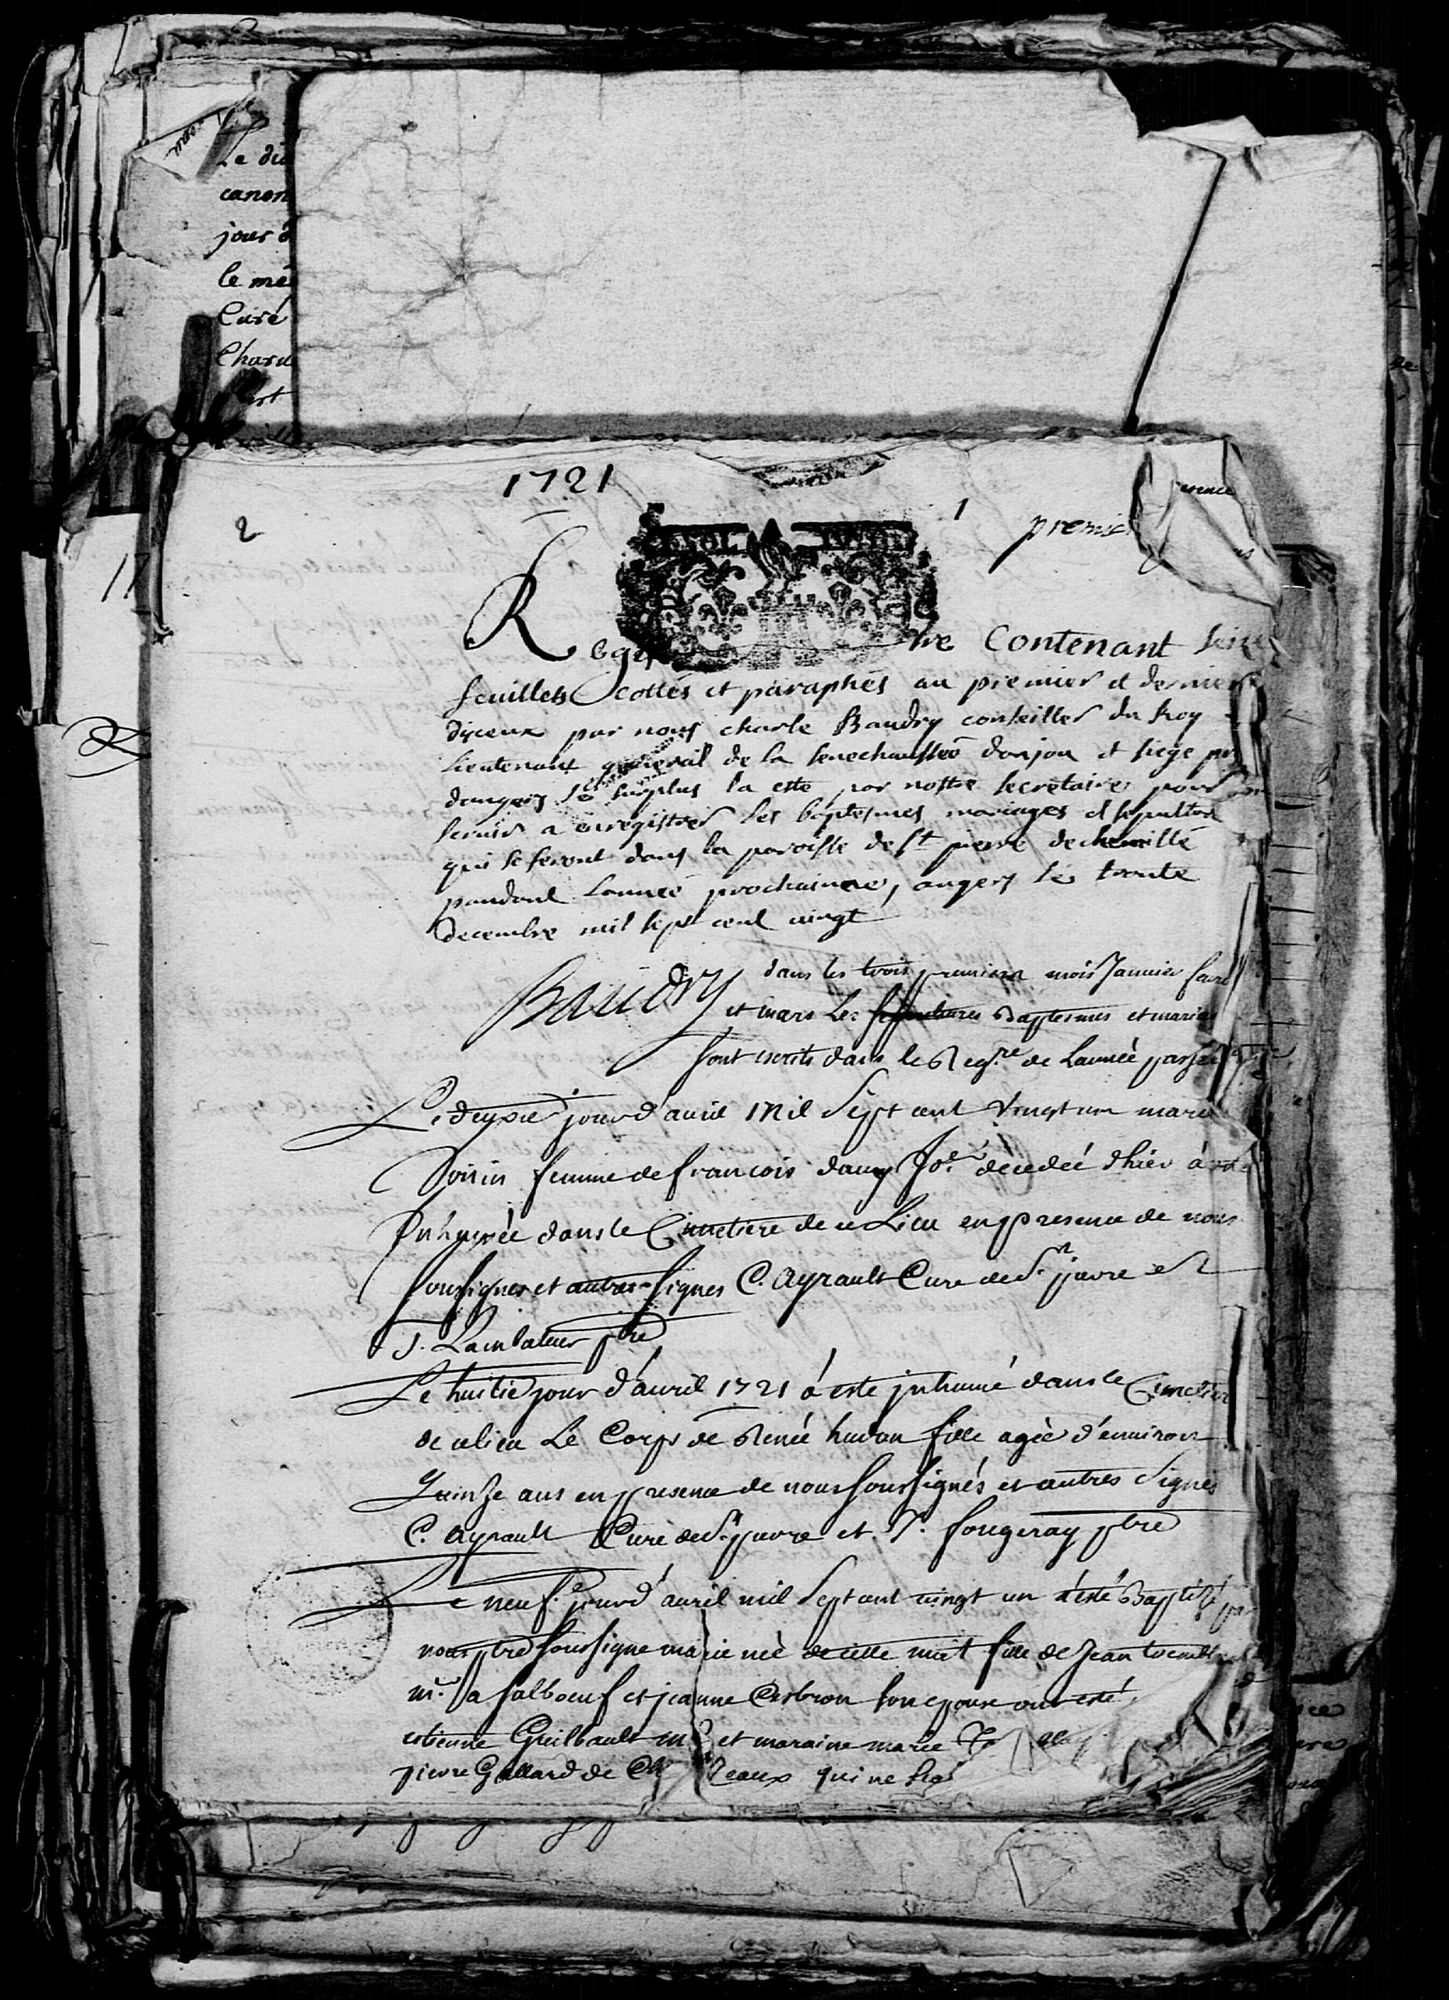 Le di
canon
jour d
le me
Curé
Charu
1721
2
1
premie
Regis tre Contenant seize
feuillets cottés et paraphés au premier et dernier
diceux par nous charle Baudry conseiller du Roy
lieutenant general de la senechaussée donjon et siege pr
dangers le surplus la esté par nostre secretaire pour
servir a enregistrer les baptesmes mariages et sepultur
qui se feront dans la paroisse de St pierre de chemillé
pendant lannée prochaine, angers le trente
decembre mil sept cent vingt
Baudry
dans les trois premiers mois Janvier fevr
et mars les sepultures Baptesmes et mariag
sont escrits dans le Regre de lannée passée
Le jour d'avril mil Sept cent vingt un marie
Voisin femme de francois davy decedée d'hier à esté
Inhumée dans le Cimetiere de ce Lieu en presence de nous
soussignes et autres signes C. Ayrault Curé de St pierre et
J. Lambaleur ptre
Le huitie jour d'avril 1721 à este inhumé dans le Cimetier
de ce lieu Le Corps de Renée hudon fille agée d'environ
Quinse ans en presence de nous soussignés et autres Signes
C. Ayrault Curé de St pierre et J. fougeray ptre
Le neufe jour d'avril mil Sept cent vingt un à été Baptisé par
nous ptre soussigne marie née de cette nuit fille de Jean
mre a salboeuf et jeanne Cesbron son epouse ont esté
estienne Guilbault et maraine marie
pierre Gallard de qui ne